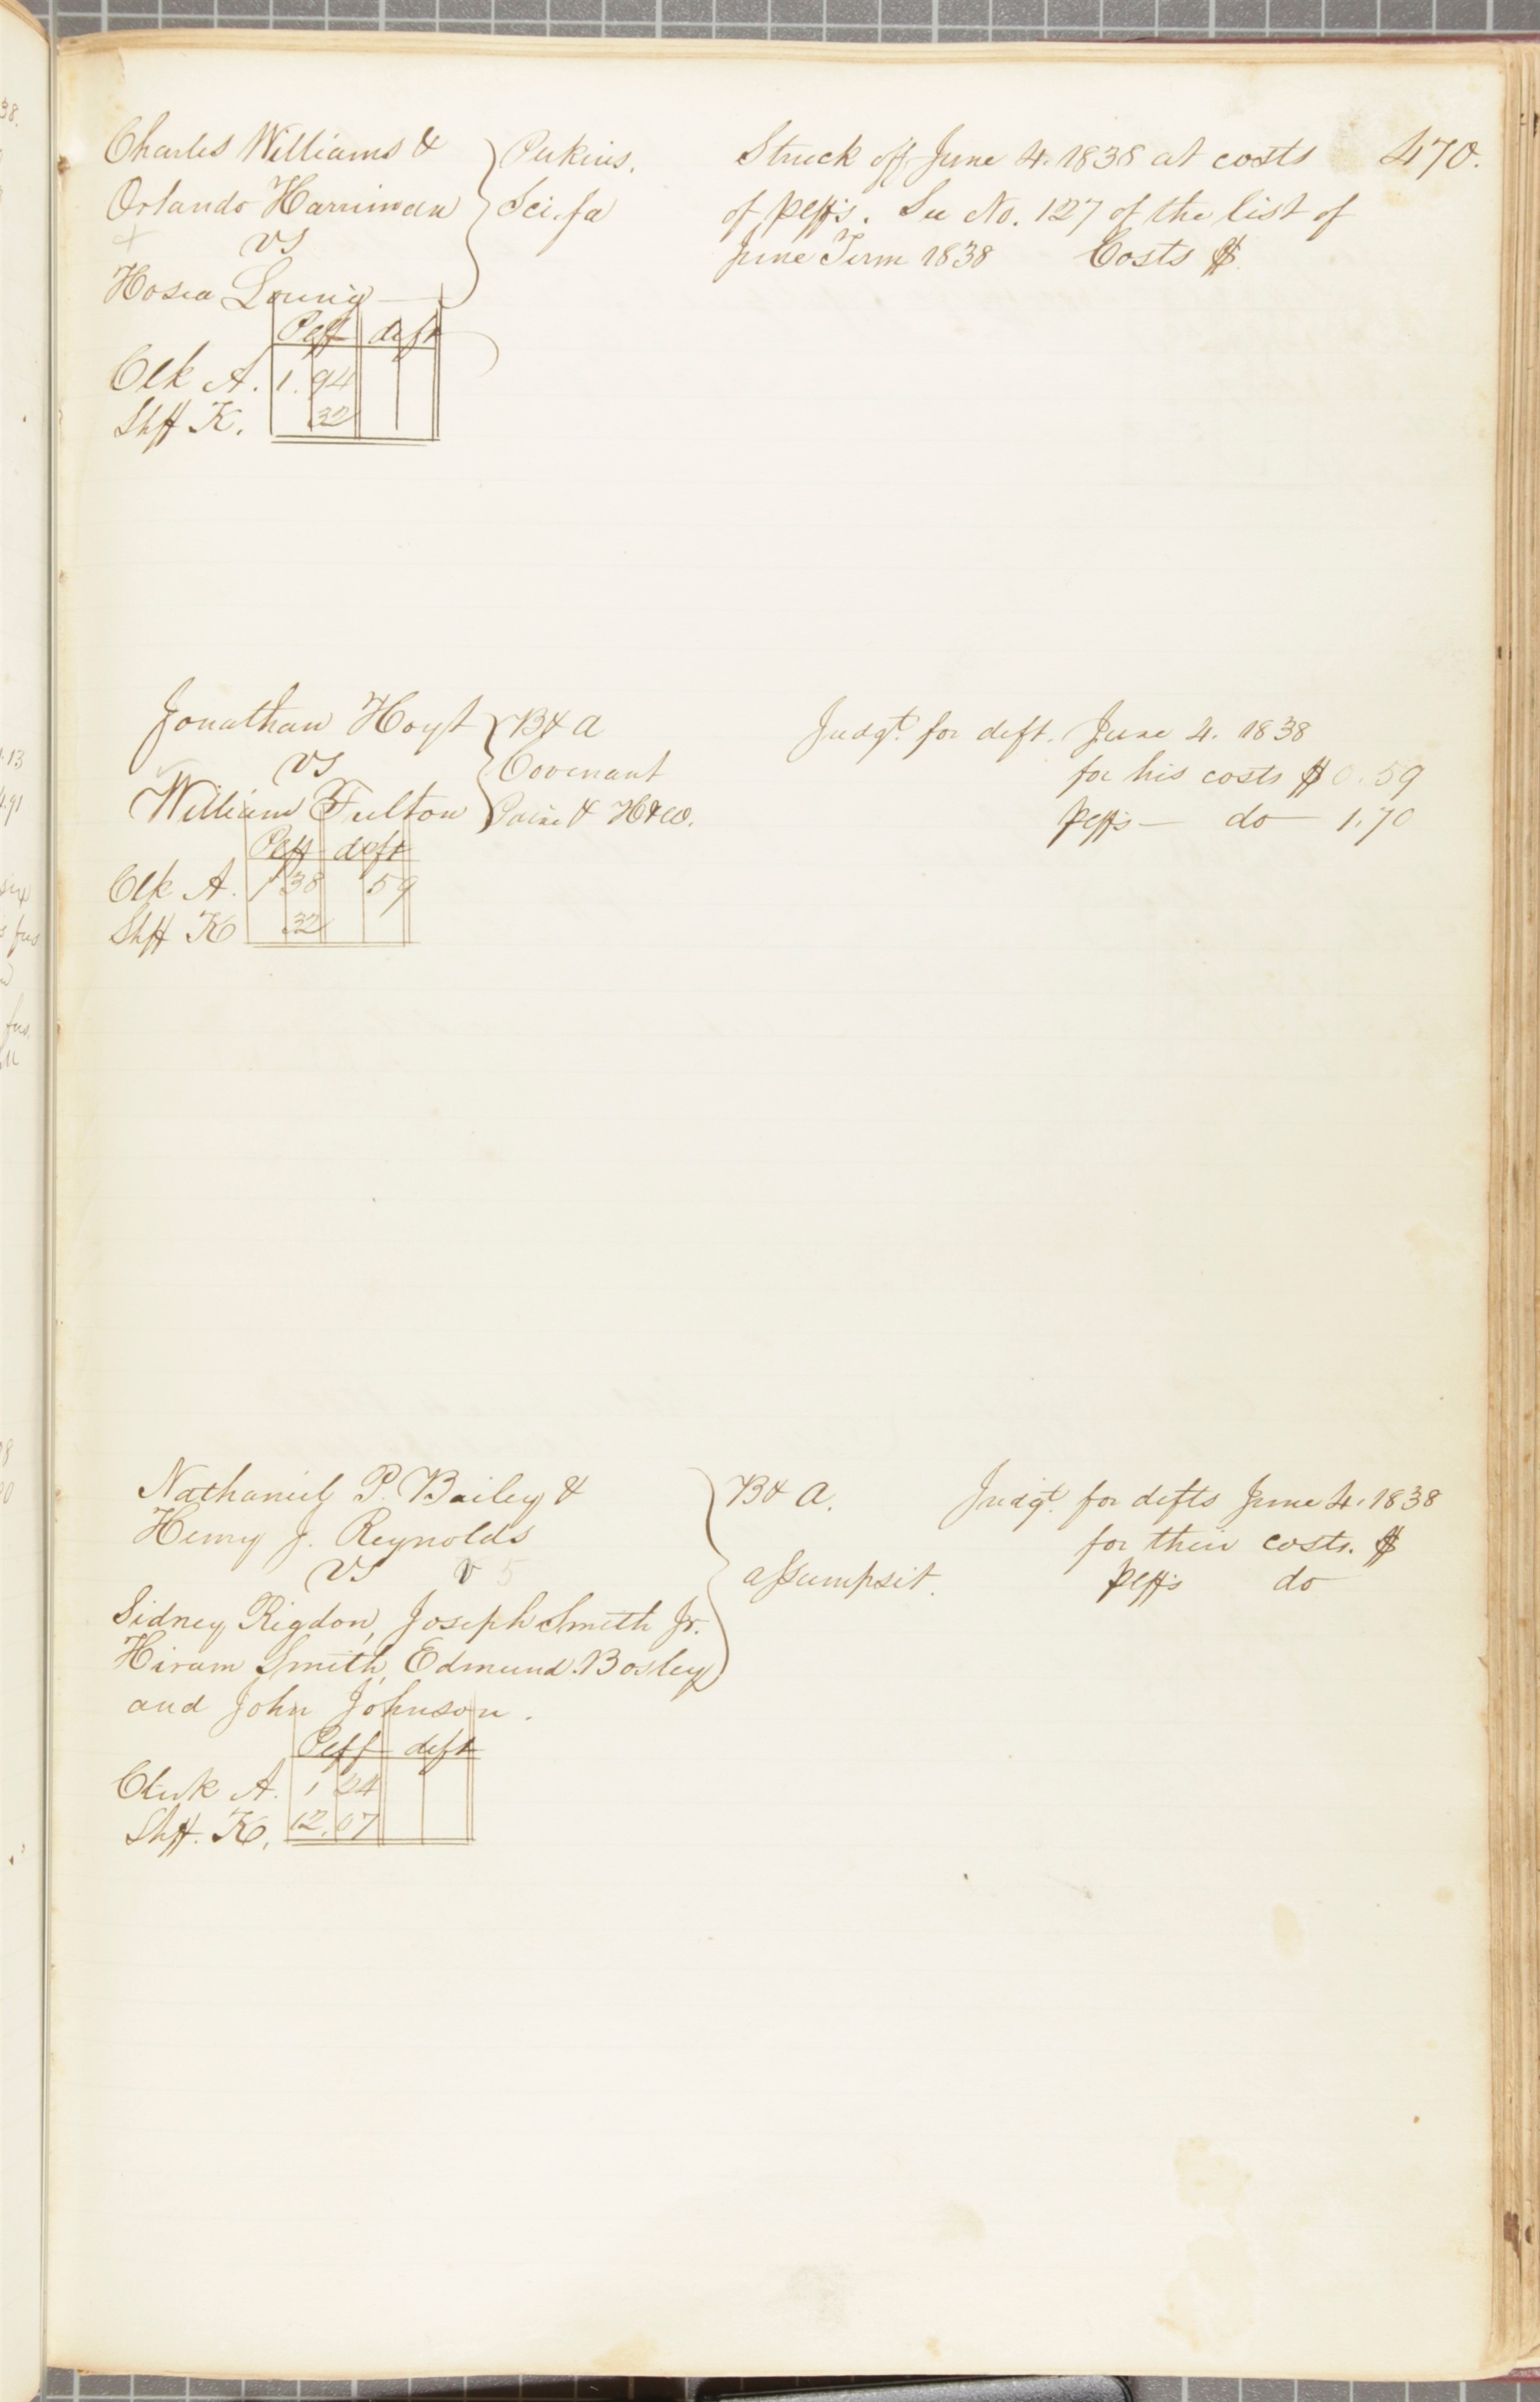 470.
Charles Williams &
Orlando Harriman
vs
Hosea
Perkins.
Sci. fa
Struck off June 4. 1838 at costs
of pltffs. See No. 127 of the list of
June Term 1838 Costs $
Pltff deft
Clk A. 1.94
Shff K. 32
Jonathan Hoyt
vs
William Fulton
B & A
Covenant
Paine & H & Co.
Judgt. for deft. June 4. 1838
for his costs $0.59
pltffs — do — 1.70
Pltff deft
Clk A. 1 38 59
Shff K 32
Nathaniel P. Bailey &
Henry J. Reynolds
vs
Sidney Rigdon, Joseph Smith Jr.
Hiram Smith, Edmund Bosley
and John Johnson.
B & A.
assumpsit.
Judgt. for defts June 4. 1838
for their costs. $
pltffs do
Pltff deft
Clerk A. 1 24
Shff. K. 12.07